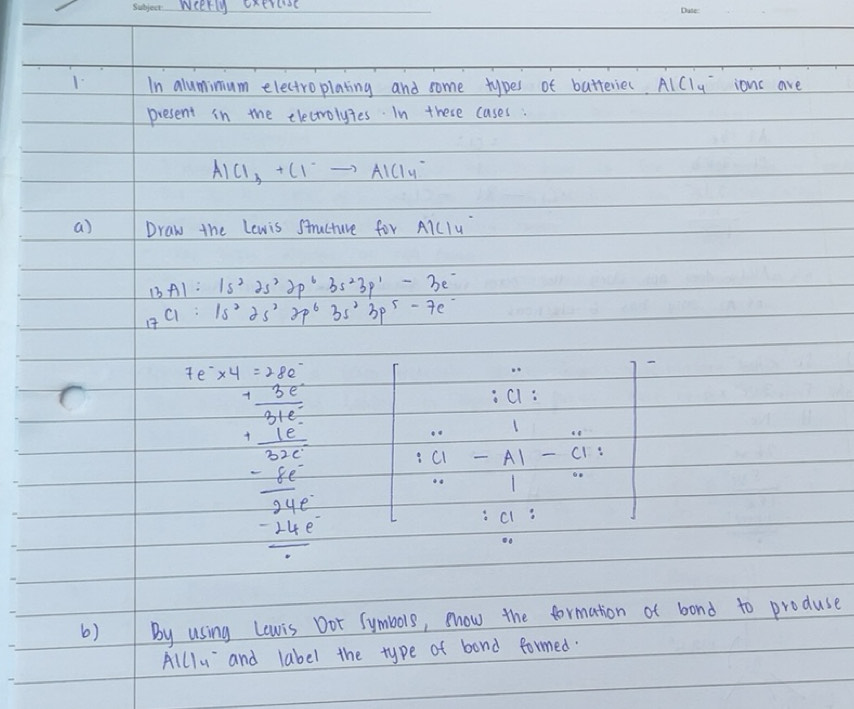 Subject: Weekly Exercise
Date:
1. In aluminium electroplating and some types of batteries, AlCl₄⁻ ions are
present in the electrolytes. In these cases:
AlCl₃ + Cl⁻ → AlCl₄⁻
a) Draw the Lewis Structure for AlCl₄⁻
₁₃Al : 1s² 2s² 2p⁶ 3s² 3p¹ - 3e⁻
₁₇Cl : 1s² 2s² 2p⁶ 3s² 3p⁵ - 7e⁻
7e⁻ x 4 = 28e⁻
+ 3e⁻
31e⁻
+ 1e⁻
32e⁻
- 8e⁻
24e⁻
- 24e⁻
.
[ ] ⁻
: Cl :
: Cl - Al - Cl :
: Cl :
b) By using Lewis Dot Symbols, show the formation of bond to produse
AlCl₄⁻ and label the type of bond formed.